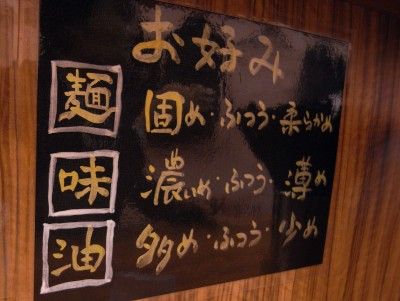 お好み
麺 固め・ふつう・柔らかめ
味 濃いめ・ふつう・薄め
油 多め・ふつう・少め